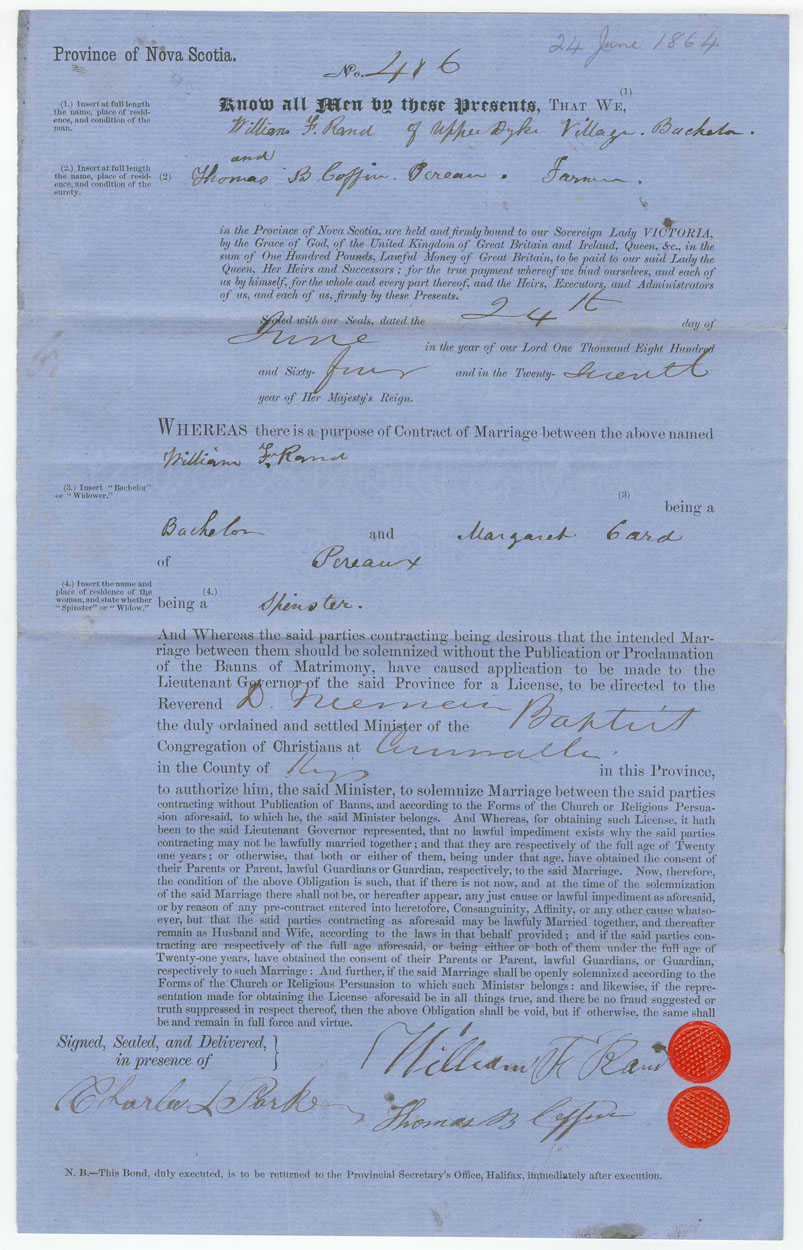 24 June 1864
Province of Nova Scotia.
No. 486
(1.) Insert at full length
the name, place of resid-
ence, and condition of the
man.
Know all Men by these Presents, THAT WE, (1)
William F. Rand of Upper Dyke Village. Bachelor.
and
(2.) Insert at full length
the name, place of resid-
ence, and condition of the
surety.
(2) Thomas B Coffin. Pereau. Farmer.
in the Province of Nova Scotia, are held and firmly bound to our Sovereign Lady VICTORIA,
by the Grace of God, of the United Kingdom of Great Britain and Ireland, Queen, &c., in the
sum of One Hundred Pounds, Lawful Money of Great Britain, to be paid to our said Lady the
Queen, Her Heirs and Successors; for the true payment whereof we bind ourselves, and each of
us by himself, for the whole and every part thereof, and the Heirs, Executors, and Administrators
of us, and each of us, firmly by these Presents.
Sealed with our Seals, dated the 24th day of
June in the year of our Lord One Thousand Eight Hundred
and Sixty- four and in the Twenty- seventh
year of Her Majesty's Reign.
WHEREAS there is a purpose of Contract of Marriage between the above named
William F. Rand
(3.) Insert "Bachelor"
or "Widower."
(3)
being a
Bachelor and Margaret Card
of Pereaux
(4.) Insert the name and
place of residence of the
woman, and state whether
"Spinster" or "Widow."
(4.)
being a Spinster.
And Whereas the said parties contracting being desirous that the intended Mar-
riage between them should be solemnized without the Publication or Proclamation
of the Banns of Matrimony, have caused application to be made to the
Lieutenant Governor of the said Province for a License, to be directed to the
Reverend D. Freeman
the duly ordained and settled Minister of the Baptist
Congregation of Christians at Cornwallis.
in the County of Kings in this Province,
to authorize him, the said Minister, to solemnize Marriage between the said parties
contracting without Publication of Banns, and according to the Forms of the Church or Religious Persua-
sion aforesaid, to which he, the said Minister belongs. And Whereas, for obtaining such License, it hath
been to the said Lieutenant Governor represented, that no lawful impediment exists why the said parties
contracting may not be lawfully married together; and that they are respectively of the full age of Twenty
one years; or otherwise, that both or either of them, being under that age, have obtained the consent of
their Parents or Parent, lawful Guardians or Guardian, respectively, to the said Marriage. Now, therefore,
the condition of the above Obligation is such, that if there is not now, and at the time of the solemnization
of the said Marriage there shall not be, or hereafter appear, any just cause or lawful impediment as aforesaid,
or by reason of any pre-contract entered into heretofore, Consanguinity, Affinity, or any other cause whatso-
ever, but that the said parties contracting as aforesaid may be lawfuly Married together, and thereafter
remain as Husband and Wife, according to the laws in that behalf provided; and if the said parties con-
tracting are respectively of the full age aforesaid, or being either or both of them under the full age of
Twenty-one years, have obtained the consent of their Parents or Parent, lawful Guardians, or Guardian,
respectively to such Marriage: And further, if the said Marriage shall be openly solemnized according to the
Forms of the Church or Religious Persuasion to which such Ministsr belongs: and likewise, if the repre-
sentation made for obtaining the License aforesaid be in all things true, and there be no fraud suggested or
truth suppressed in respect thereof, then the above Obligation shall be void, but if otherwise, the same shall
be and remain in full force and virtue.
Signed, Sealed, and Delivered,
in presence of
William F Rand
Charles L Park
Thomas B Coffin
N. B.—This Bond, duly executed, is to be returned to the Provincial Secretary's Office, Halifax, immediately after execution.